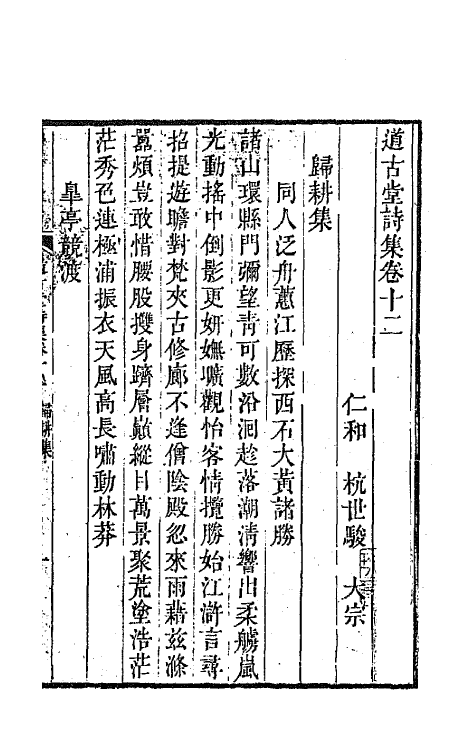 道古堂詩集卷十二
仁和 杭世駿 大宗
歸耕集
同人泛舟蕙江歷探西石大黃諸勝
諸山環縣門彌望靑可數沿洄趁落潮淸響出柔艣嵐
光動搖中倒影更姸嫵曠觀怡客情攬勝始江滸言尋
招提遊瞻對梵夾古修廊不逢僧陰殿忽來雨藉兹滌
囂煩豈敢惜腰股㩳身躋層巔縱目萬景聚荒塗浩茫
茫秀色連極浦振衣天風高長嘯動林莽
臯亭競渡